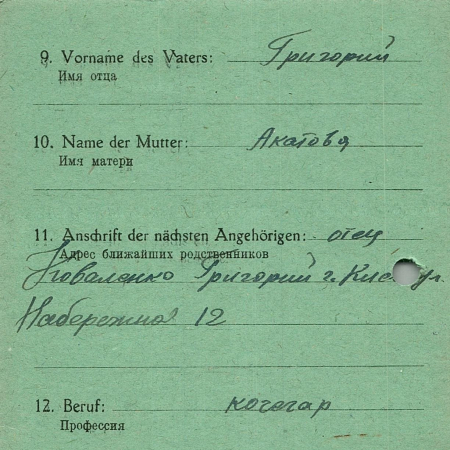 9. Vorname des Vaters: Григорий
Имя отца
10. Name der Mutter: Акатова
Имя матери
11. Anschrift der nächsten Angehörigen: отец
Адрес ближайших редственников
Коваленко Григорий г. ул.
Набережная 12
12. Beruf: кочегар
Профессия